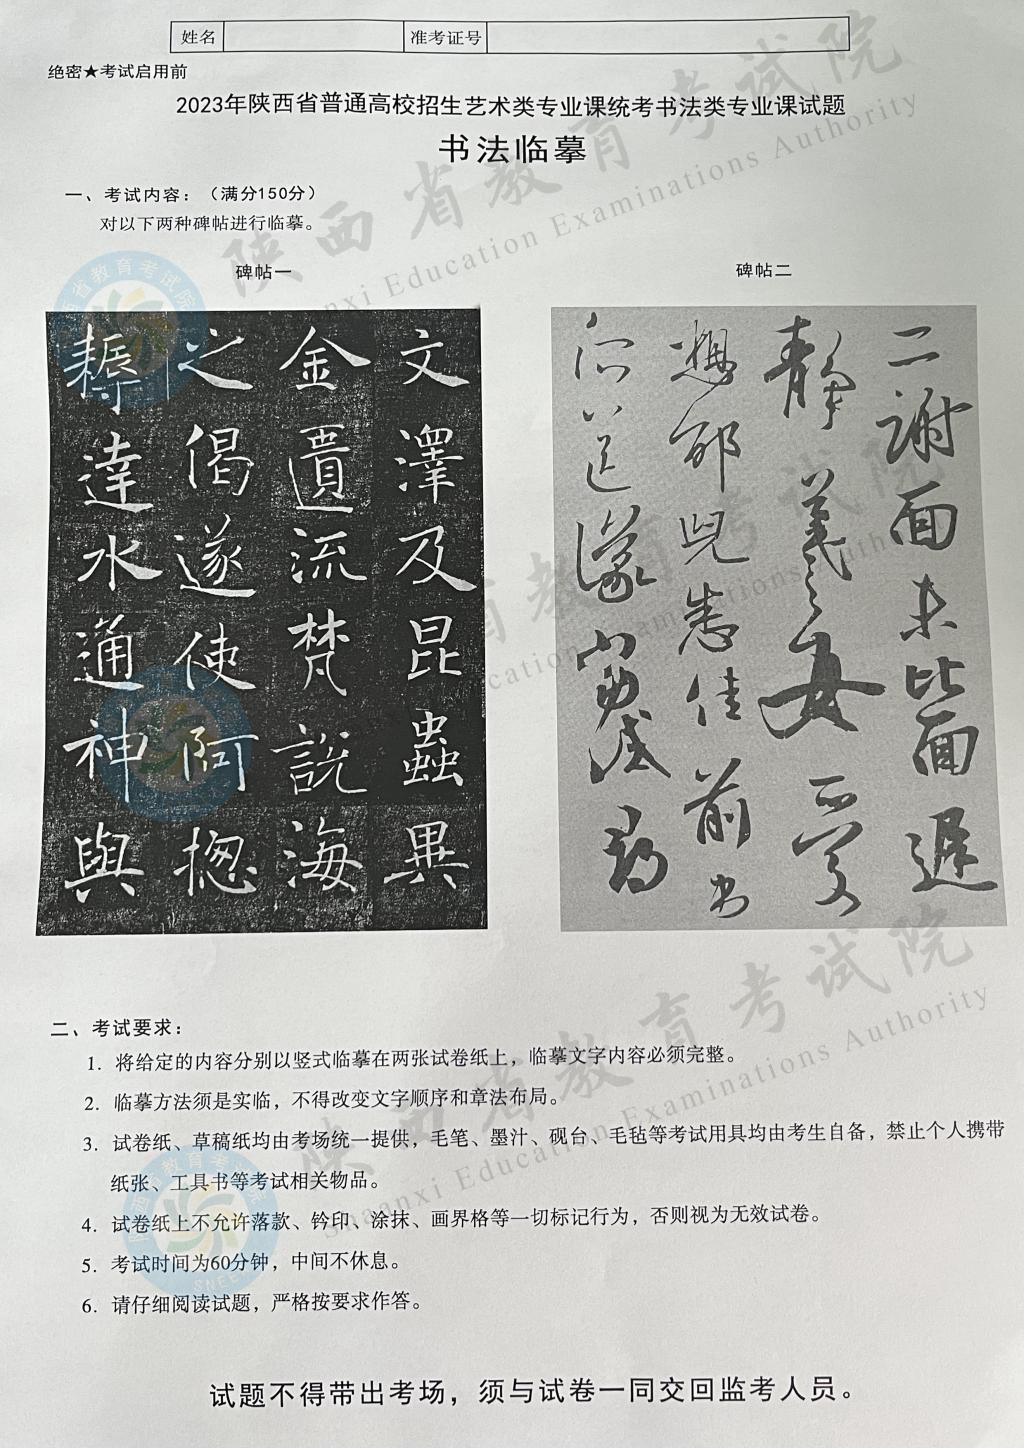 姓名 准考证号
绝密★考试启用前
2023年陕西省普通高校招生艺术类专业课统考书法类专业课试题
书法临摹
一、考试内容：（满分150分）
对以下两种碑帖进行临摹。
碑帖一
文澤及昆蟲異
金匱流梵說海
之偈遂使阿
耨達水通神與
碑帖二
二謝面未比面遲
靜羲之女愛
想邵兒悉佳前
二、考试要求：
1. 将给定的内容分别以竖式临摹在两张试卷纸上，临摹文字内容必须完整。
2. 临摹方法须是实临，不得改变文字顺序和章法布局。
3. 试卷纸、草稿纸均由考场统一提供，毛笔、墨汁、砚台、毛毡等考试用具均由考生自备，禁止个人携带
纸张、工具书等考试相关物品。
4. 试卷纸上不允许落款、钤印、涂抹、画界格等一切标记行为，否则视为无效试卷。
5. 考试时间为60分钟，中间不休息。
6. 请仔细阅读试题，严格按要求作答。
试题不得带出考场，须与试卷一同交回监考人员。
陕西省教育考试院
Shaanxi Education Examinations Authority